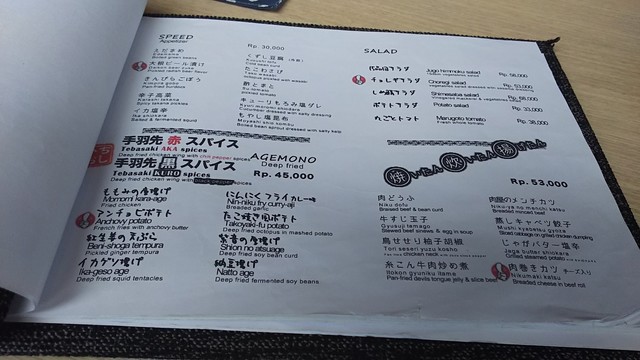 SPEED
Appetizer
Rp. 30,000
えだまめ
Edamame
Boiled green beans
大根ビール漬け
Pickled radish beer flavor
きんぴらごぼう
Kinpira gobo
Pan-fried burdock
辛子高菜
Karashi takana
Spicy takana pickles
イカ塩辛
Ika shiokara
Salted & fermented squid
くずし豆腐
たこわさび
Tako wasabi
酢とまと
Su tomato
pickled tomato
キューリもろみ塩ダレ
もやし塩昆布
Moyashi shio konbu
SALAD
Jugo tenmaku salad
Rp. 58,000
チョレギサラダ
Choregi salad
Rp. 53,000
しめ鯖サラダ
Shimesaba salad
Rp. 58,000
ポテトサラダ
Potato salad
Rp. 33,000
まるごとトマト
Marugoto tomato
Fresh whole tomato
Rp. 38,000
手羽先 赤 スパイス
Tebasaki AKA spices
Deep fried chicken wing with chili pepper spices
手羽先 黒 スパイス
Tebasaki KURO spices
AGEMONO
Deep fried
Rp. 45,000
ももみの唐揚げ
Momomi kara-age
Fried chicken
アンチョビポテト
Anchovy potato
French fries with anchovy butter
紅生姜の天ぷら
Beni-shoga tempura
Pickled ginger tempura
イカゲソ揚げ
Ika-geso age
Deep fried squid tentacles
にんにくフライカレー味
Nin-niku fry curry-aji
Breaded garlic
たこ焼き風ポテト
Takoyaki-fu potato
Deep fried octopus in mashed potato
紫音の唐揚げ
Shion no atsuage
Deep fried bean curd
納豆揚げ
Natto age
Deep fried fermented soy beans
Rp. 53,000
肉どうふ
Niku dofu
Beef & bean curd
牛すじ玉子
Gyusuji tamago
鳥せせり柚子胡椒
Tori seseri yuzu kosho
糸こん牛肉炒め煮
Itokon gyuniku itame
Pan-fried devils tongue jelly & slice beef
肉屋のメンチカツ
Niku-ya no menchi katsu
Breaded minced beef
蒸しキャベツ餃子
じゃがバター塩辛
Jaga butter shiokara
肉巻きカツ チーズ入り
Nikumaki katsu
Breaded cheese in beef roll